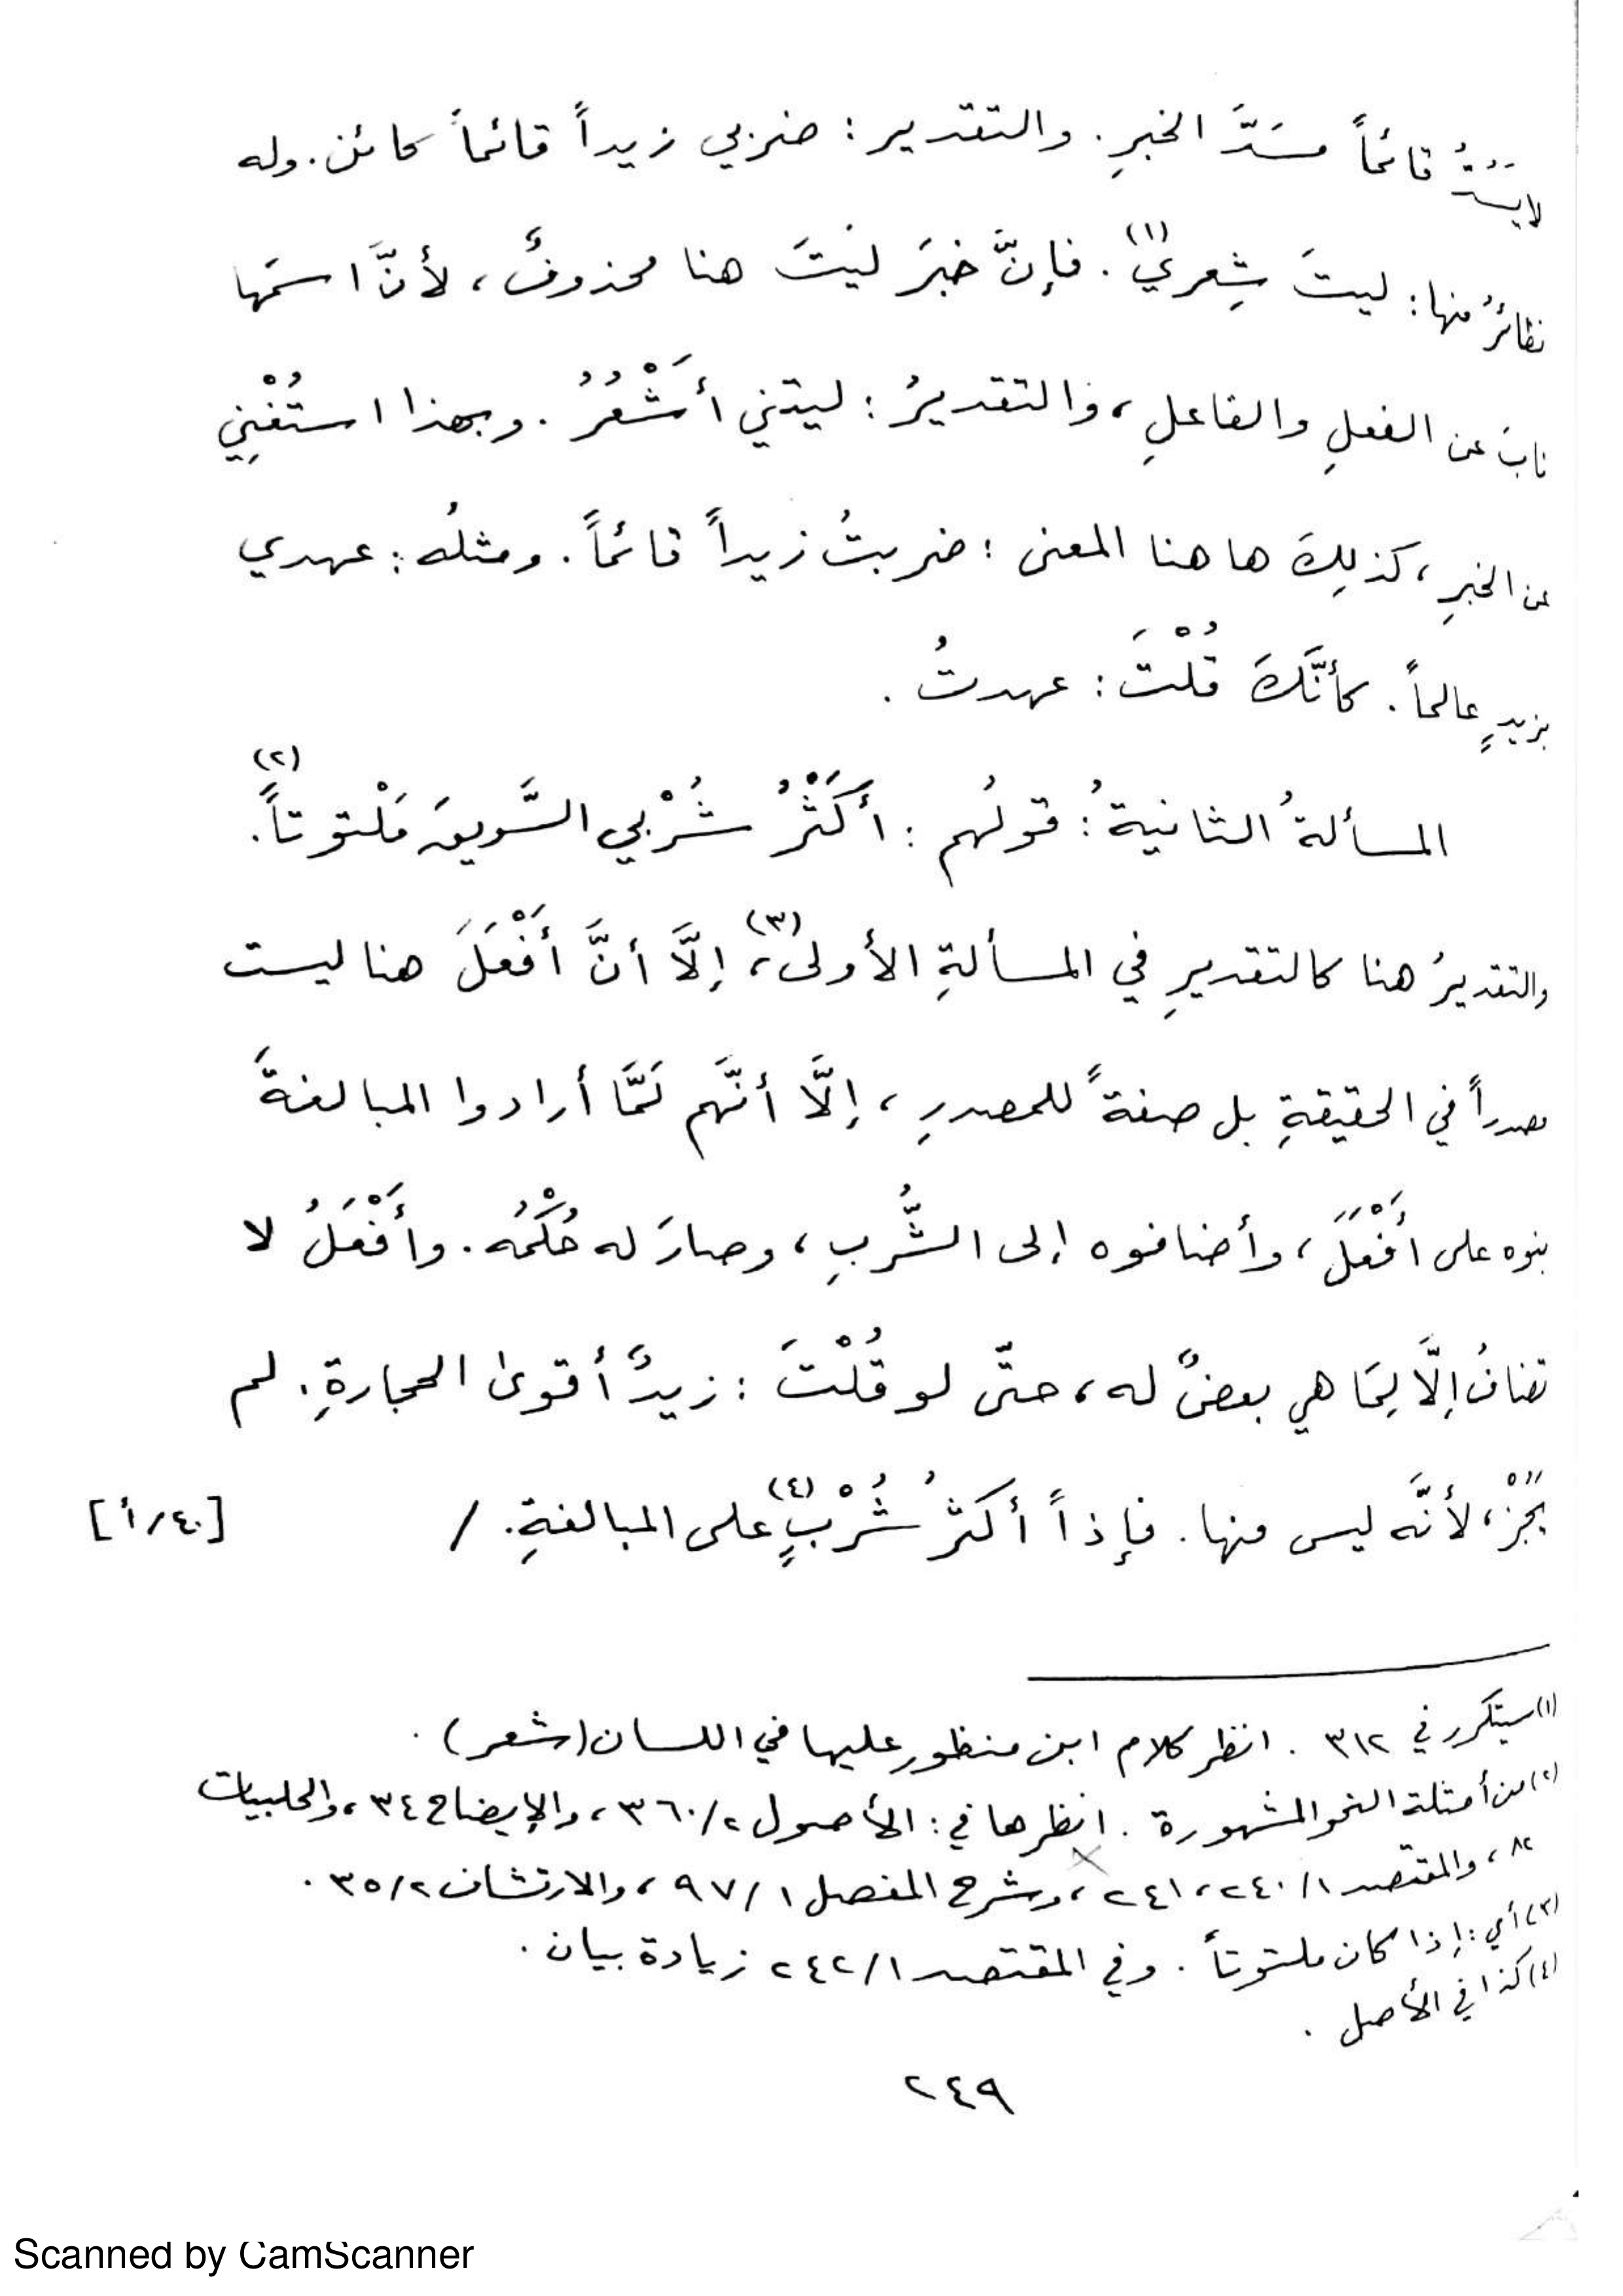 لايَسُدُّ قائماً مسَدَّ الخبرِ. والتقدير: ضربي زيداً قائماً كائن. وله
نظائرُ منها: ليتَ شِعري(١). فإنَّ خبرَ ليتَ هنا محذوفٌ، لأنَّ اسمَها
نابَ عن الفعلِ والفاعلِ، والتقديرُ: ليتني أَشْعُرُ. وبهذا استُغْنِي
عن الخبرِ، كذلِكَ هاهنا المعنى: ضربتُ زيداً قائماً. ومثلُه: عهدي
بزيدٍ عالماً. كأنَّكَ قُلْتَ: عهدتُ.
المسألةُ الثانيةُ: قولُهم: أَكَثْرُ شُرْبي السَّويقَ مَلْتوتاً(٢).
والتقديرُ هنا كالتقديرِ في المسألةِ الأولى(٣)، إلَّا أنَّ أَفْعَلَ هنا ليست
مصدراً في الحقيقةِ بل صفةً للمصدرِ، إلَّا أنَّهم لَمَّا أرادوا المبالغةَ
بنوه على أَفْعَلَ، وأضافوه إلى الشُّربِ، وصارَ له حُكْمُه. وأَفْعَلُ لا
تضافُ إلَّا لِمَا هي بعضٌ له، حتَّى لو قُلْتَ: زيدٌ أقوىٰ الحجارةِ. لم
يَجُزْ، لأنَّه ليس منها. فإذاً أكثرُ شُرْبٍ(٤) على المبالغةِ. / [٤٠/أ]
(١) سيتكرر في ٣١٢. انظر كلام ابن منظور عليها في اللسان (شعر).
(٢) من أمثلة النحو المشهورة. انظرها في: الأصول ٣٦٠/٢، والإيضاح ٣٤، والحلبيات
٨٢، والمقتصد ٢٤٠/١، ٢٤١، وشرح المفصل ٩٧/١، والارتشاف ٣٥/٢.
(٣) أي: إذا كان ملتوتاً. وفي المقتصد ٢٤٢/١ زيادة بيان.
(٤) كذا في الأصل.
٢٤٩
Scanned by CamScanner